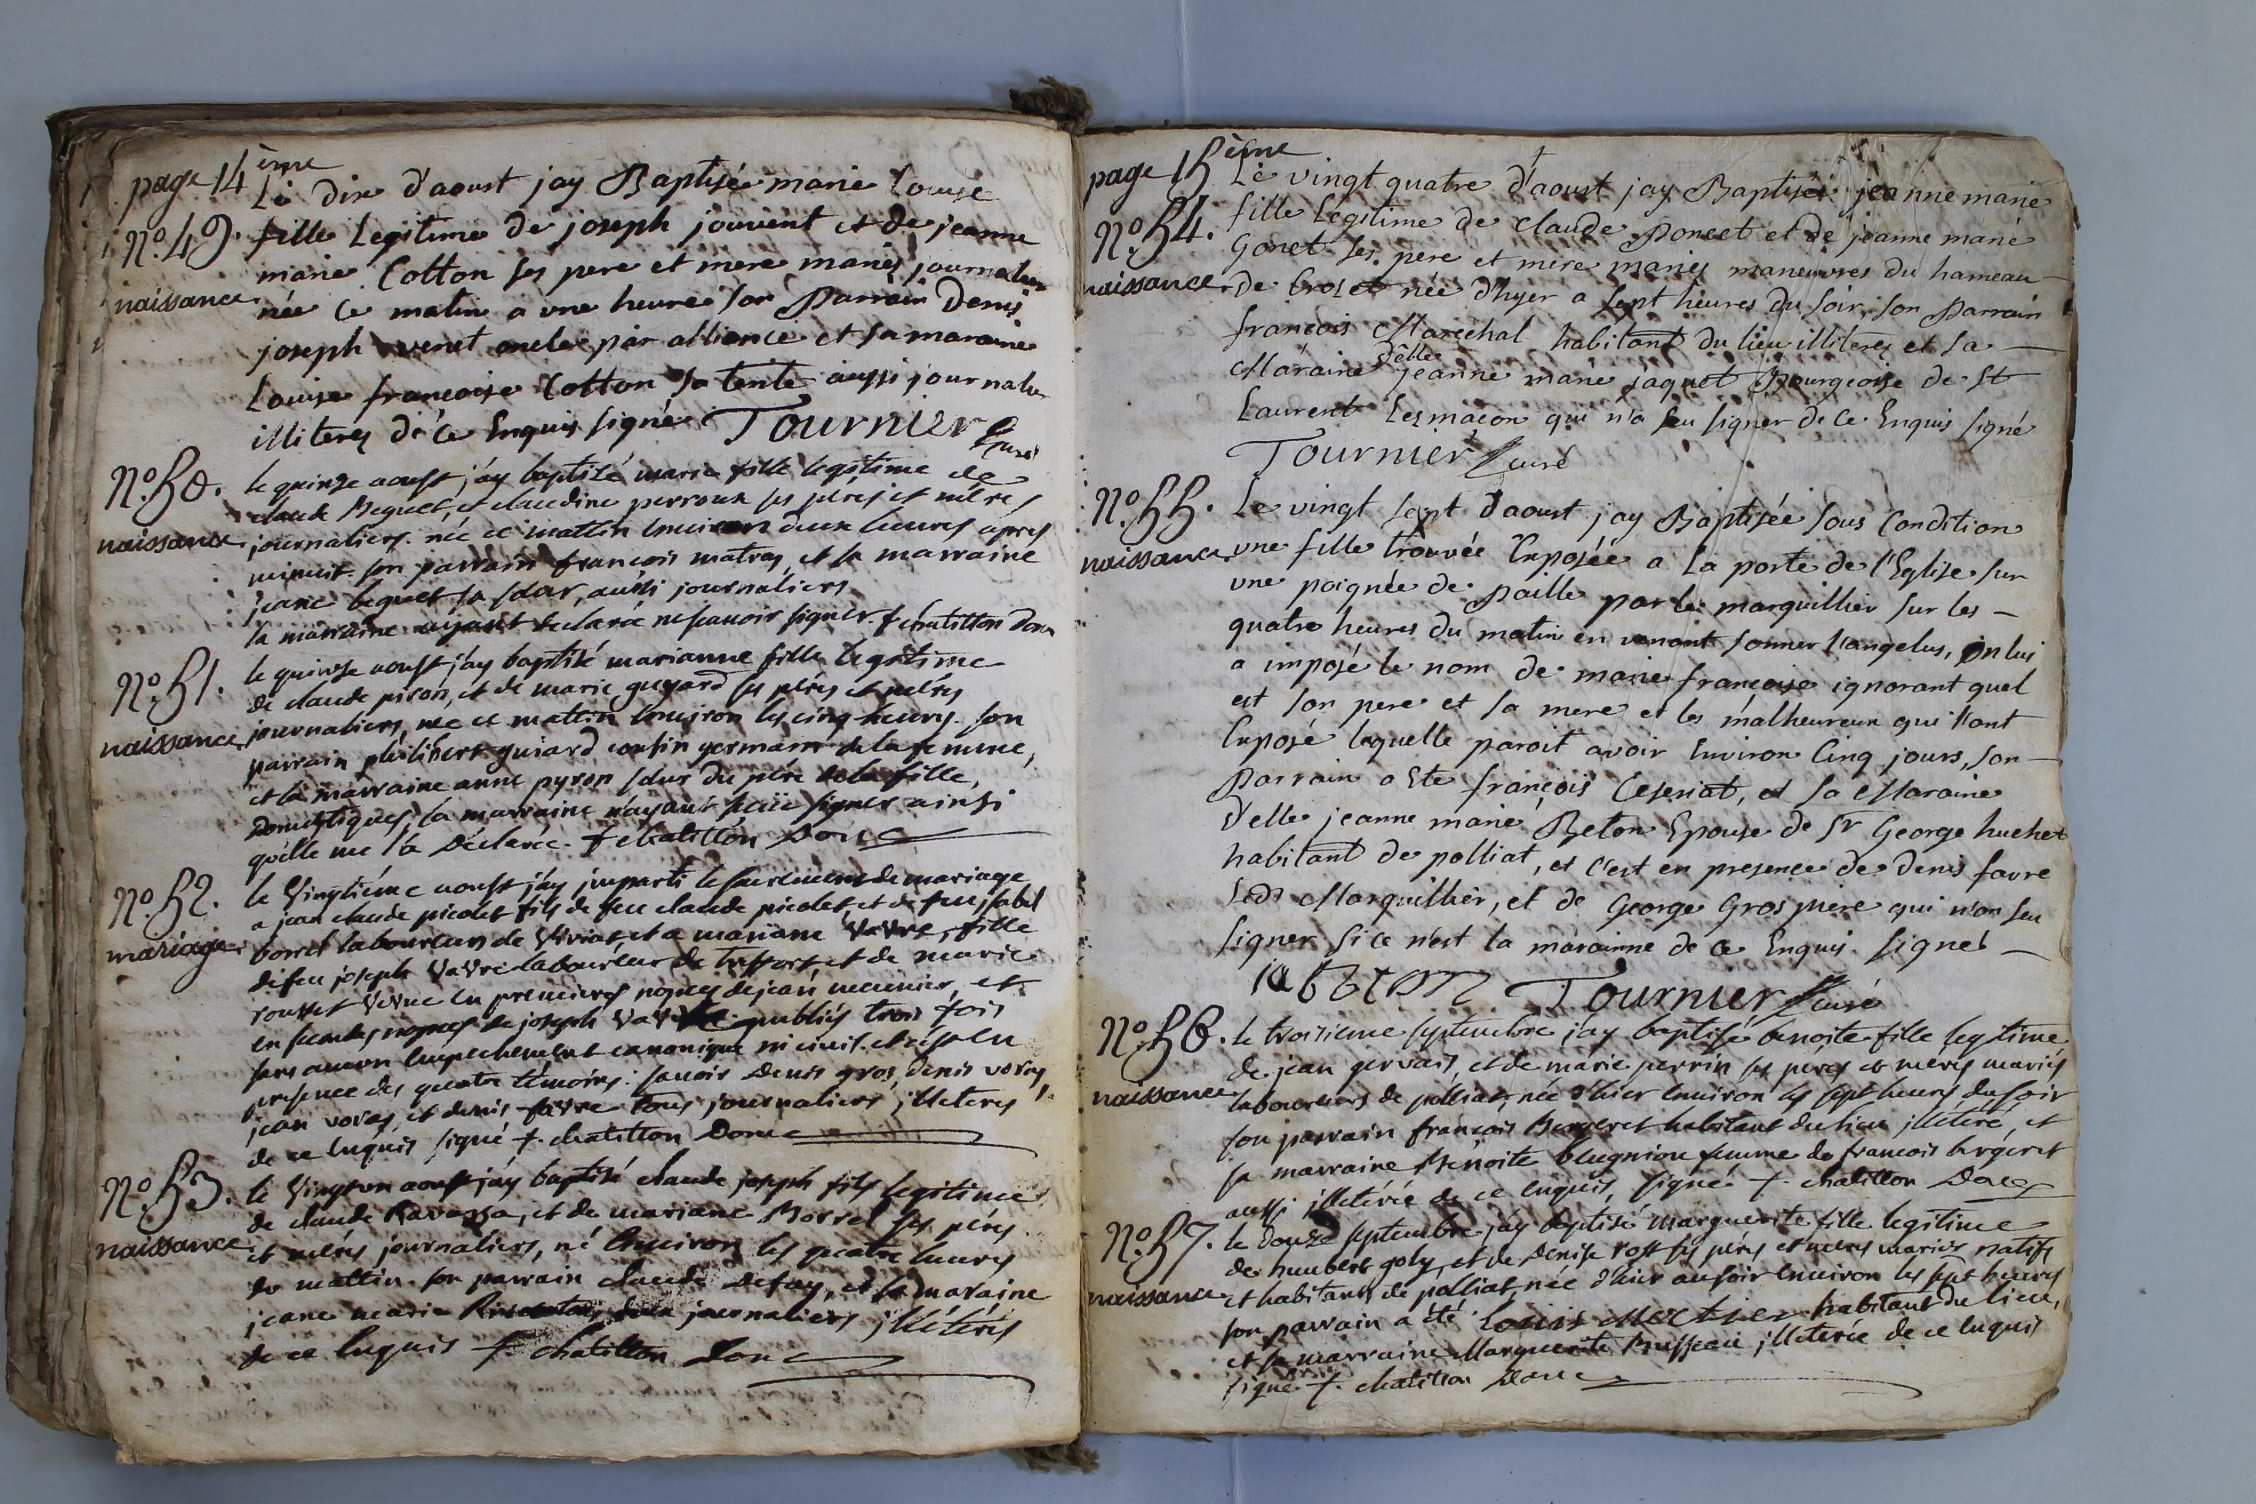 page 14ème
Le dix d'aoust jay Baptisée marie Louise
No. 49. fille Legitime de joseph jouvent et de jeanne
marie Cotton ses pere et mere mariés journaliers
naissance née ce matin a une heure son Parrain Denis
joseph venet oncle par alliance et sa maraine
Louise françoise Cotton sa tente aussi journalier
illiterés de ce Enquis signé Tournier Curé
No. 50. le quinze aoust j'ay baptisé marie fille legitime de
claude Beguet, et claudine perroux ses péres et méres
naissance journaliers. née ce mattin environ deux heures après
minuit son parrain françois matras, et sa marraine
jeane beguet sa sœur, aussi journaliers
la marraine aÿant declarée ne sçavoir signer. f chatillon Donc
No. 51. le quinze aoust j'ay baptisé marianne fille legitime
de claude piron, et de marie guyard ses péres et méres
naissance journaliers, née ce mattin environ les cinq heures. son
parrain philibert guiard cousin germain de la femme,
et la marraine anne pyron sœur du pére de la fille,
Domestiques, la marraine n'ayant sçeüe signer ainsi
qu'elle me l'a Déclarée. f chatillon Donc
No. 52. le Vingtiéme aoust j'ay imparti le sacrement de mariage
a jean claude picolet fils de feu claude picolet, et de feu jsabel
mariage borret laboureurs de Viriat, et a mariane VaVre, fille
de feu joseph VaVre laboureur de treffort, et de marie
rousset Vevve en premieres noçes de jean meunier, et
en secondes noçes de joseph VaVre publiés trois fois
sans aucun empechement canonique ni civil. et c'est en
presence des quatre témoins: savoir Denis gros, denis voras,
jean voras, et denis faVre tous journaliers jlleteres
de ce enquis signé f. chatillon Donc
No. 53. le Vingt un aoust j'ay baptisé claude joseph fils legitime
de claude Ravassa, et de mariane Borret ses péres
naissance et méres journaliers, né Environ les quatre heures
du mattin. son parrain claude Defay, et sa maraine
jeane marie journaliers jlletérés
de ce enquis f. chatillon Donc
page 15ème
Le vingt quatre d'aoust jay Baptisée jeanne marie
No. 54. fille Legitime de Claude Poncet et de jeanne marie
Gonet ses pere et mere mariés maneuvres du hameau
naissance de Croset née d'hyer a sept heures du soir, son Parrain
françois Marechal habitant du lieu illiterés et sa
Maraine delle jeanne marie jaquet Bourgeoise de St
Laurent Les macon qui n'a seu signer de ce Enquis signé
Tournier Curé
No. 55. Le vingt sept d'aoust jay Baptisée sous Condition
naissance une fille trouvée Exposée a La porte de l'Eglise sur
une poignée de Paille par le marguillier sur les
quatre heures du matin en venant sonner l'angelus, on lui
a imposé le nom de marie françoise ignorant quel
est son pere et sa mere et les malheureux qui l'ont
Exposé laquelle paroit avoir Environ Cinq jours, son
Parrain a Eté françois Ceseriat, et sa Maraine
d'elle jeanne marie Beton Epouse de Sr George huchet
habitant de polliat, et c'est en presence de denis favre
Ledt Marguillier, et de George Gros piere qui n'on seu
signer si ce n'est la marainne de ce Enquis. signés
Tournier Curé
No. 56. le troisieme septembre j'ay baptisé benoite fille legitime
de jean gervais, et de marie perrin ses péres et méres mariés
naissance laboureurs de polliat, née d'hier environ les sept heures du soir
son parrain françois Bergeret habitant du lieu jlletéré, et
sa marraine Bénoite blugnion femme de francois bergeret
aussi jlletérée de ce enquis, signé f. chatillon Donc
No. 57. le douze septembre j'ay baptisé marguerite fille legitime
de humbert goly, et de Denise rost ses péres et méres mariés natifs
naissance et habitants de polliat, née d'hier au soir environ les sept heures
son parrain a été Louis habitant du lieu,
et sa marraine Marguerite Buisseau jlleterée de ce enquis
signé f. chatillon Donc